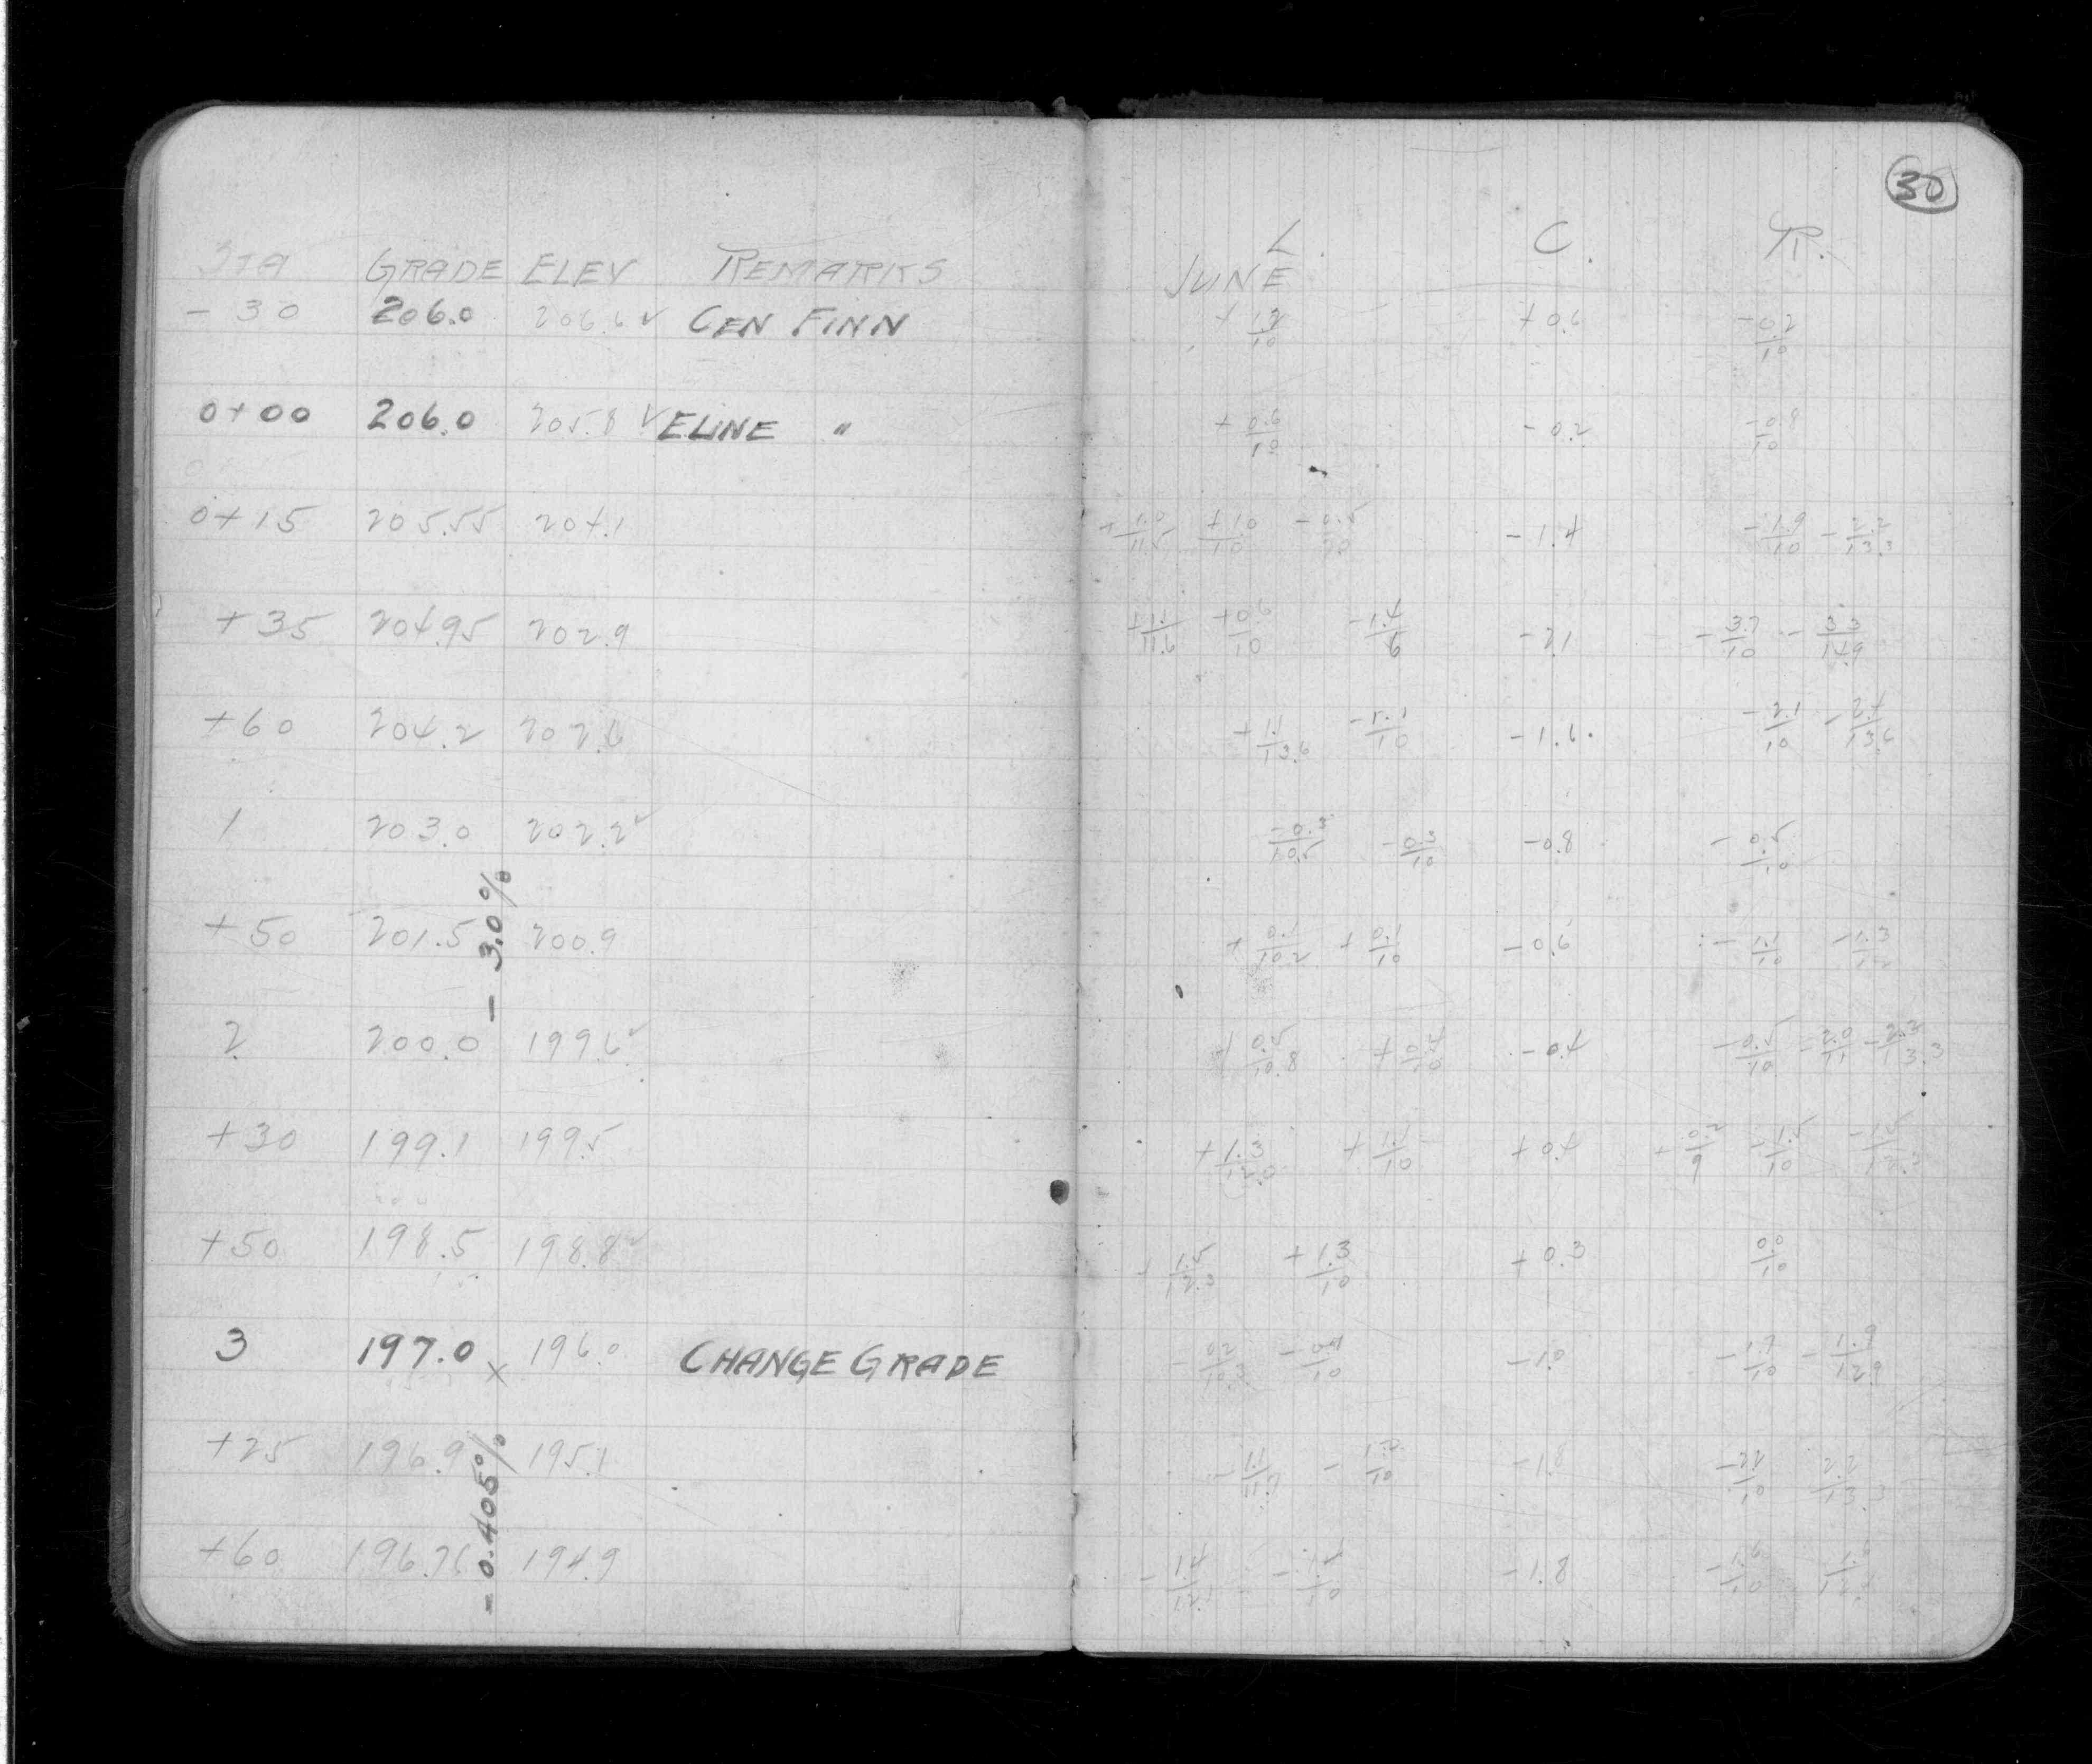 30
STA GRADE ELEV REMARKS L. C. R.
JUNE
- 30 206.0 206.6 ✓ CEN FINN + 1.2/10 + 0.6 - 0.2/10
0+00 206.0 205.8 ✓ E LINE " + 0.6/10 - 0.2 - 0.8/10
0+15 205.55 204.1 + 1.0/11.5 + 1.0/10 - 0.5/10 - 1.4 - 1.9/10 - 2.2/13.3
+35 204.95 202.9 + 1.1/11.6 + 0.6/10 - 1.4/6 - 2.1 - 3.7/10 - 3.3/14.9
+60 204.2 202.6 + 1.1/13.6 - 1.1/10 - 1.6 - 2.1/10 - 2.4/13.6
1 203.0 202.2 ✓ - 0.3/10.5 - 0.3/10 - 0.8 - 0.5/10
- 3.0%
+50 201.5 200.9 + 0.1/10.2 + 0.1/10 - 0.6 - 1.1/10 - 1.3/12
2 200.0 199.6 ✓ + 0.5/10.8 + 0.4/10 - 0.4 - 0.5/10 - 2.0/11 - 2.2/13.3
+30 199.1 199.5 + 1.3/12.0 + 1.1/10 + 0.4 + 0.2/9 - 1.5/10 - 1.5/12.3
+50 198.5 198.8 ✓ + 1.5/12.3 + 1.3/10 + 0.3 0.0/10
3 197.0 x 196.0 CHANGE GRADE - 0.2/10.3 - 0.4/10 - 1.0 - 1.7/10 - 1.9/12.9
+25 196.9 195.1 - 1.1/11.7 - 1.0/10 - 1.8 - 2.2/10 2.2/13.3
- 0.405%
+60 196.76 194.9 - 1.4/12.1 - 1.8 - 1.6/10